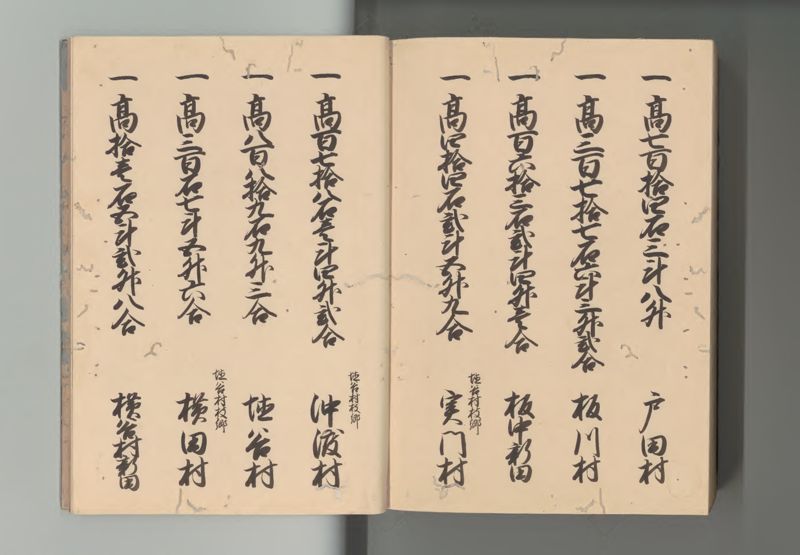 一 高七百拾四石三斗八升 戸田村
一 高三百七拾七石六斗三升弐合 板川村
一 高百六拾三石弐斗四升壱合 板中新田
一 高四拾四石弐斗五升九合
塩谷村枝郷
実門村
一 高百七拾八石壱斗四升弐合
塩谷村枝郷
沖渡村
一 高八百八拾九石九升三合 塩谷村
一 高三百石七斗五升六合
塩谷村枝郷
横田村
一 高拾壱石五斗弐升八合 横谷村新田